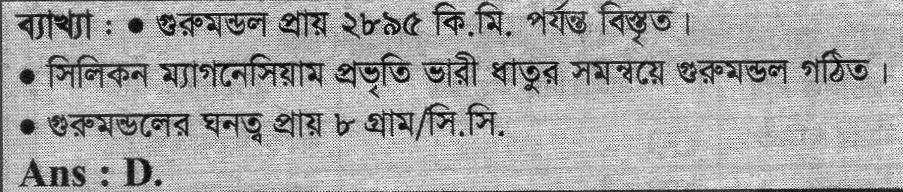 ব্যাখ্যা : ● গুরুমন্ডল প্রায় ২৮৯৫ কি.মি. পর্যন্ত বিস্তৃত।
● সিলিকন ম্যাগনেসিয়াম প্রভৃতি ভারী ধাতুর সমন্বয়ে গুরুমন্ডল গঠিত।
● গুরুমন্ডলের ঘনত্ব প্রায় ৮ গ্রাম/সি.সি.
Ans : D.